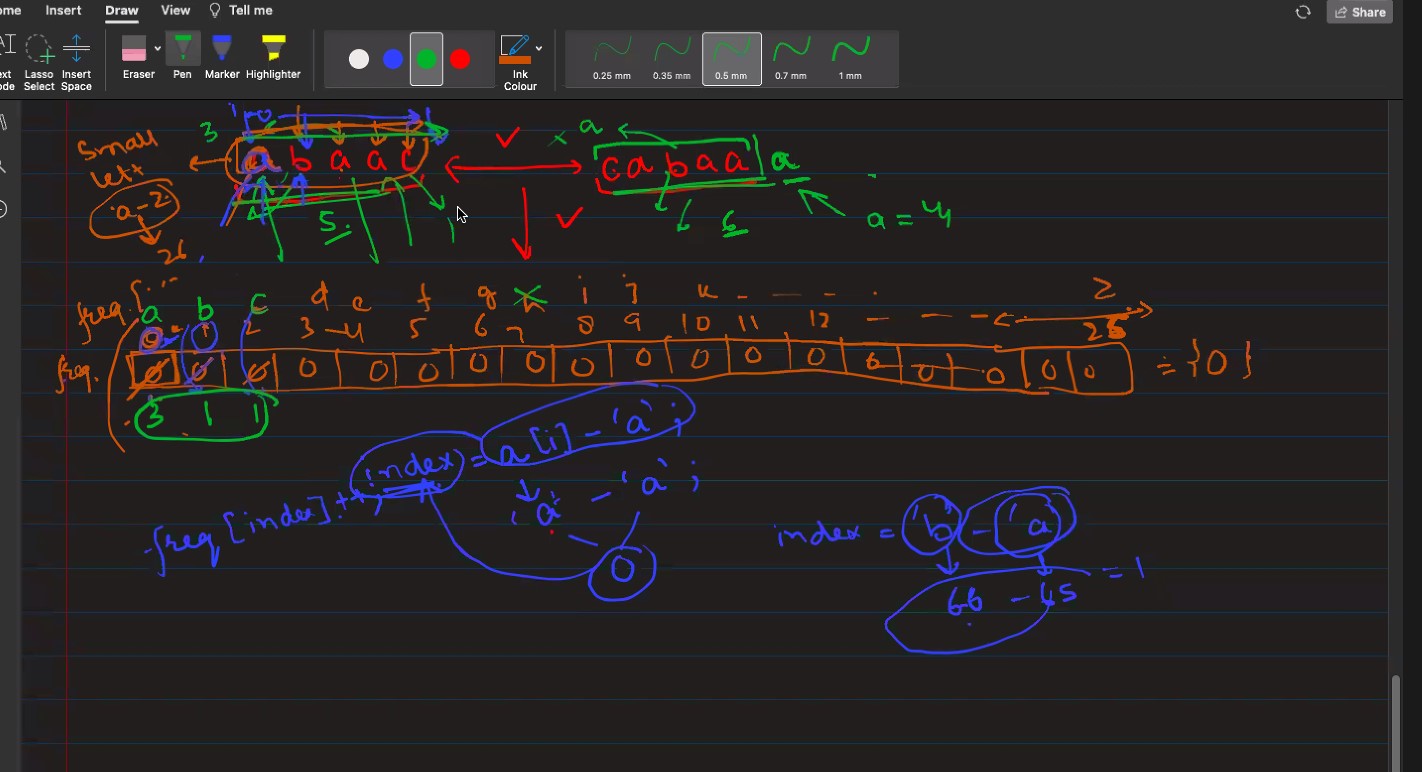 ome Insert Draw View Tell me Share
ext ode Lasso Select Insert Space Eraser Pen Marker Highlighter Ink Colour 0.25 mm 0.35 mm 0.5 mm 0.7 mm 1 mm
small 3 a b a a c x a c a b a a a
a-z 5. 6 a = 4
26
freq a b c d e f g h i j k - - - . z
0 1 2 3 4 5 6 7 8 9 10 11 12 - - - 25
freq. 0 0 0 0 0 0 0 0 0 0 0 0 0 0 0 0 0 0 = {0}
3 1 1
index = a[i] - 'a';
freq[index]++; 'a' - 'a';
index = 'b' - 'a'
0
66 - 65 = 1